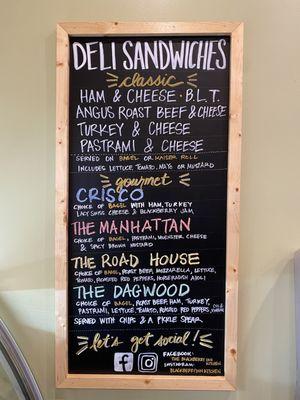 DELI SANDWICHES
classic
HAM & CHEESE · B.L.T.
ANGUS ROAST BEEF & CHEESE
TURKEY & CHEESE
PASTRAMI & CHEESE
SERVED ON BAGEL OR KAISER ROLL
INCLUDES LETTUCE, TOMATO, MAYO OR MUSTARD
gourmet
CRISCO
CHOICE OF BAGEL WITH HAM, TURKEY
LACY SWISS CHEESE & BLACKBERRY JAM
THE MANHATTAN
CHOICE OF BAGEL, PASTRAMI, MUENSTER CHEESE
& SPICY BROWN MUSTARD
THE ROAD HOUSE
CHOICE OF BAGEL, ROAST BEEF, MOZZARELLA, LETTUCE,
TOMATO, ROASTED RED PEPPERS, HORSERADISH AIOLI
THE DAGWOOD
CHOICE OF BAGEL, ROAST BEEF, HAM, TURKEY,
PASTRAMI, LETTUCE, TOMATO, ROASTED RED PEPPERS, OIL &
SERVED WITH CHIPS & A PICKLE SPEAR
let's get social!
FACEBOOK:
THE BLACKBERRY INN
KITCHEN
INSTAGRAM:
BLACKBERRYINNKITCHEN